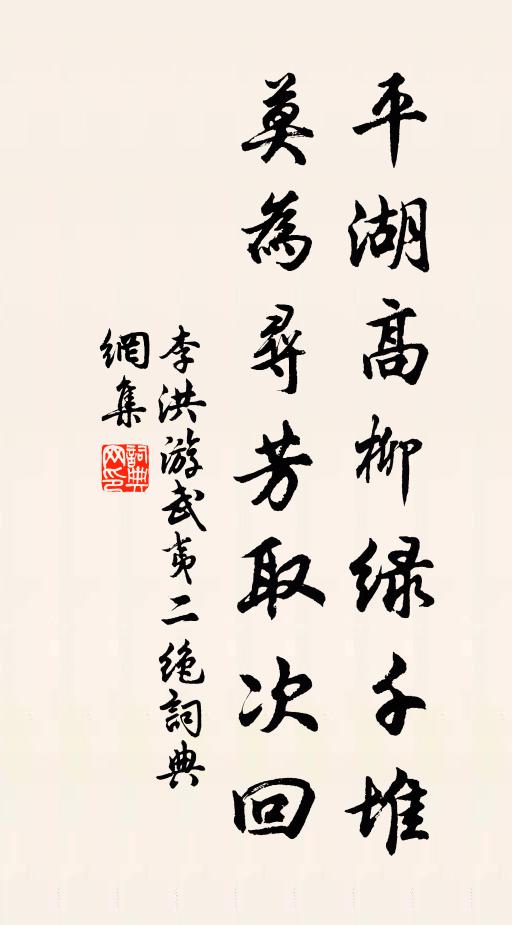 平湖高柳绿千堆
莫為尋芳取次回
李洪游武夷二绝詞典
網集
詞典网印